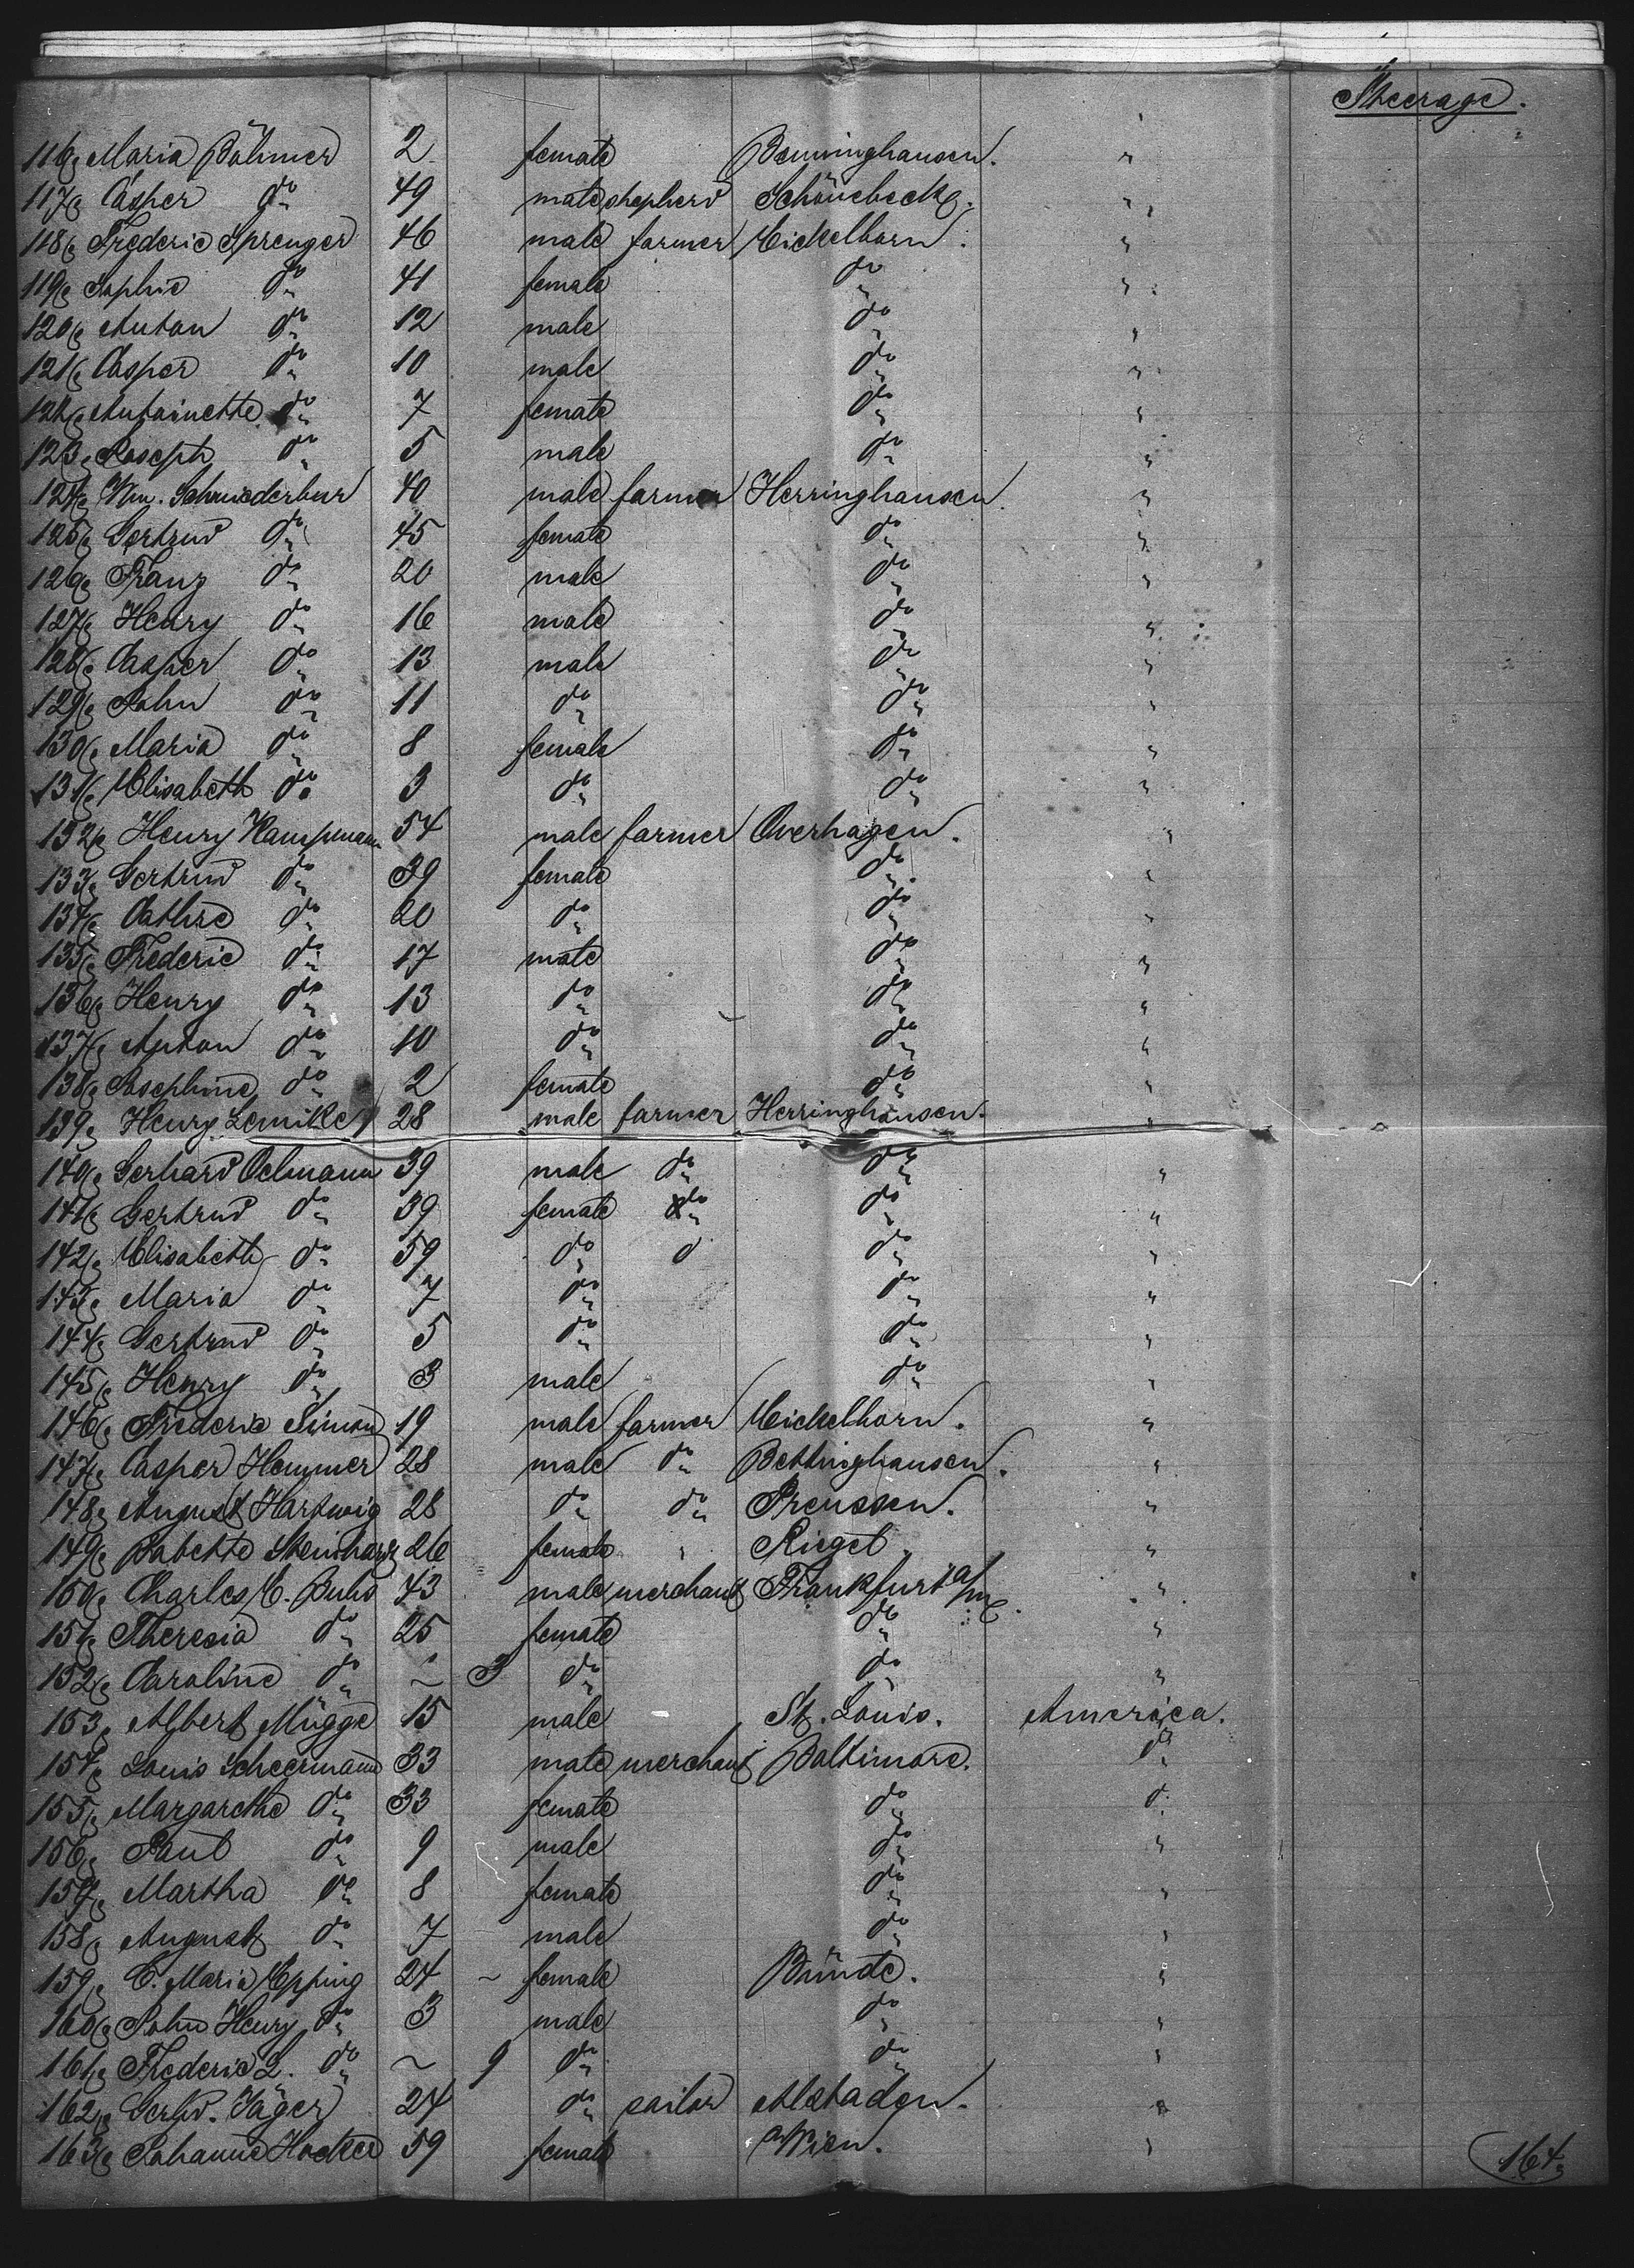 Steerage.
116, Maria Böhmer 2 female Benninghausen. "
117, Casper do 49 male shepherd Schönebeck. "
118, Frederic Sprenger 46 male farmer Eickelborn. "
119, Sophie do 41 female do "
120, Anton do 12 male do "
121, Casper do 10 male do "
122, Antoinette do 7 female do "
123, Joseph do 5 male do "
124, Wm. Schniederbur 40 male farmer Herringhausen. "
125, Gertrud do 45 female do "
126, Franz do 20 male do "
127, Henry do 16 male do "
128, Casper do 13 male do "
129, John do 11 do do "
130, Maria do 8 female do "
131, Elisabeth do 3 do do "
132, Henry Kampmann 54 male farmer Overhagen. "
133, Gertrud do 39 female do "
134, Cathre do 20 do do "
135, Frederic do 17 male do "
136, Henry do 13 do do "
137, Anton do 10 do do "
138, Josephine do 2 female do "
139, Henry Lemike 28 male farmer Herringhausen. "
140, Gerhard Oelmann 39 male do do "
141, Gertrud do 39 female do do "
142, Elisabeth do 59 do d do "
143, Maria do 7 do do "
144, Gertrud do 5 do do "
145, Henry do 3 male do "
146, Frederic Simon 19 male farmer Eickelborn. "
147, Casper Hemmer 28 male do Bettinghausen. "
148, August Hartwig 28 do do Preussen. "
149, Babette Steinharz 26 female " Riegel "
150, Charles E. Buhs 43 male merchant Frankfurt a/m. "
151, Theresia do 25 female do "
152, Caroline do ~ 3 do do "
153, Albert Mügge 15 male St. Louis. America.
154, Louis Scheermann 33 male merchant Baltimore. do
155, Margarethe do 33 female do d.
156, Paul do 9 male do "
157, Martha do 8 female do "
158, August do 7 male do "
159, C. Maria Epping 24 ~ female Bünde. "
160, John Henry do 3 male do "
161, Frederic L. do ~ 9 do do "
162, Gerhd. Jäger 24 do sailor Alstaden. "
163, Johanne Hocker 59 female Wien. "
164,